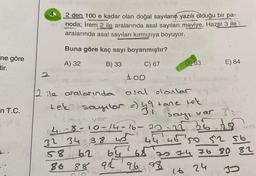 2 den 100 e kadar olan doğal sayıların yazılı olduğu bir pa-
noda; İrem 2 ile aralarında asal sayıları maviye, Hazal 3 ile
aralarında asal sayıları kırmızıya boyuyor.
Buna göre kaç sayı boyanmıştır?
A) 32 B) 33 C) 67 E) 84
ne göre
tir.
2 100
2 ile aralarında asal olanlar
tek sayılar 49 tane tek
sayı var
n T.C.
4-8-10-14-16- 20-22 26 28
32 34 38 40 44 46 50 52 56
58 62 64 68 70 74 76 80 82
86 88 92 96 98
16 24